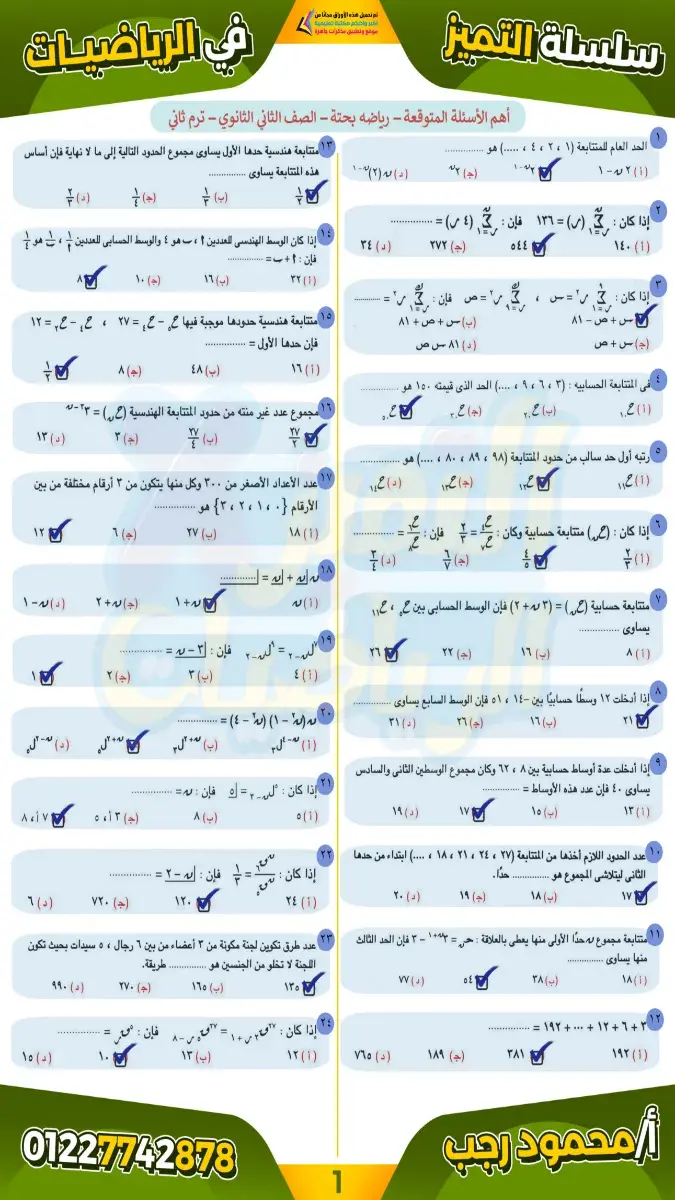 سلسلة التميز
في الرياضيـات
تم تحميل هذه الأوراق مجاناً من
موقع وتطبيق مذكرات جاهزة
أهم الأسئلة المتوقعة – رياضه بحتة – الصف الثاني الثانوي – ترم ثاني
١ الحد العام للمتتابعة (١ ، ٢ ، ٤ ، ....) هو ...............
(أ) ٢ن – ١ ٢ن-١ (ج) ٢ن (د) ن(٢)ن-١
٢ إذا كان : ∑ن ر=١ (ر) = ١٣٦ فإن : ∑ن ر=١ (٤ ر) = ...............
(أ) ١٤٠ ٥٤٤ (ج) ٢٧٢ (د) ٣٤
٣ إذا كان : ∑ ر=١ ر٢ = س ، ∑ ر=٩ ر٢ = ص فإن : ∑ ر=١ ر٢ = ...........
س + ص – ٨١ (ب) س + ص + ٨١
(ج) س + ص (د) ٨١ س ص
٤ في المتتابعة الحسابيه : (٣ ، ٦ ، ٩ ، ....) الحد الذى قيمته ١٥٠ هو ...............
(أ) ح١٠ (ب) ح٢٠ (ج) ح٣٠ ح٥٠
٥ رتبه أول حد سالب من حدود المتتابعة (٩٨ ، ٨٩ ، ٨٠ ، ....) هو ...............
(أ) ح١١ ح١٢ (ج) ح١٣ (د) ح١٤
٦ إذا كان : (حن) متتابعة حسابية وكان :
(أ) ٢/٣ ٤/٥ (ج) ٦/٧ (د) ٣/٤
٧ متتابعة حسابية (حن) = (٣ ن + ٢) فإن الوسط الحسابى بين ح٥ ، ح١١
يساوى ...............
(أ) ٨ (ب) ١٦ (ج) ٢٢ ٢٦
٨ إذا أدخلت ١٢ وسطًا حسابيًا بين –١٤ ، ٥١ فإن الوسط السابع يساوى ...............
٢١ (ب) ١٦ (ج) ٢٦ (د) ٣١
٩ إذا أدخلت عدة أوساط حسابية بين ٨ ، ٦٢ وكان مجموع الوسطين الثانى والسادس
يساوى ٤٠ فإن عدد هذه الأوساط = ...............
(أ) ١٣ (ب) ١٥ ١٧ (د) ١٩
١٠ عدد الحدود اللازم أخذها من المتتابعة (٢٧ ، ٢٤ ، ٢١ ، ١٨ ، ....) ابتداء من حدها
الثانى ليتلاشى المجموع هو ............... حدًا.
١٧ (ب) ١٨ (ج) ١٩ (د) ٢٠
١١ متتابعة مجموع ن حدًا الأولى منها يعطى بالعلاقة : جن = ٣ن+١ – ٣ فإن الحد الثالث
منها يساوى ...............
(أ) ١٨ (ب) ٣٨ ٥٤ (د) ٧٧
١٢ ٣ + ٦ + ١٢ + ... + ١٩٢ = ...............
(أ) ١٩٢ ٣٨١ (ج) ١٨٩ (د) ٧٦٥
١٣ متتابعة هندسية حدها الأول يساوى مجموع الحدود التالية إلى ما لا نهاية فإن أساس
هذه المتتابعة يساوى ...............
١/٢ (ب) ١/٣ (ج) ١/٤ (د) ٢/٣
١٤ إذا كان الوسط الهندسى للعددين أ ، ب هو ٤ والوسط الحسابى للعددين ١/أ ، ١/ب هو ١/٤
فإن : أ + ب = ...............
(أ) ٣٢ (ب) ١٦ (ج) ١٠ ٨
١٥ متتابعة هندسية حدودها موجبة فيها ح٥ – ح٤ = ٢٧ ، ح٤ – ح٢ = ١٢
فإن حدها الأول = ...............
(أ) ١٦ (ب) ٤٨ (ج) ٨ ١/٢
١٦ مجموع عدد غير منته من حدود المتتابعة الهندسية (حن) = ٣٢-ن
٢٧/٢ (ب) ٢٧/٤ (ج) ٣ (د) ١٣
١٧ عدد الأعداد الأصغر من ٣٠٠ وكل منها يتكون من ٣ أرقام مختلفة من بين
الأرقام {٠ ، ١ ، ٢ ، ٣} هو ...............
(أ) ١٨ (ب) ٢٧ (ج) ٦ ١٢
١٨ ن|ن + |ن = |...........
(أ) ن ن + ١ (ج) ن + ٢ (د) ن – ١
١٩ ٧لن-٢ = ٩لن-٢ فإن : |ن – ٣ = ...............
(أ) ٤ (ب) ٣ (ج) ٢ ١
٢٠ ن(ن٢ – ١) (ن٢ – ٤) = ...............
(أ) ن-٤ل٣ (ب) ن+٢ل٣ ن+٢ل٥ (د) ن-٢ل٥
٢١ إذا كان : ٥لن-٣ = |٥ فإن : ن = ...............
(أ) ٥ (ب) ٨ (ج) ٣ أ، ٥ ٧ أ، ٨
٢٢ إذا كان : = ١/٣ فإن : |ن – ٢ = ...............
(أ) ٢٤ ١٢٠ (ج) ٧٢٠ (د) ٦
٢٣ عدد طرق تكوين لجنة مكونة من ٣ أعضاء من بين ٦ رجال ، ٥ سيدات بحيث تكون
اللجنة لا تخلو من الجنسين هو ............... طريقة.
١٣٥ (ب) ١٦٥ (ج) ٢٧٠ (د) ٩٩٠
٢٤ إذا كان : ٢٧ق٢ر+١ = ٢٧ق٥ر-٨ فإن : ٥قر = ...............
(أ) ١٢ (ب) ١٣ ١٠ (د) ١٥
أ/محمود رجب
1
01227742878